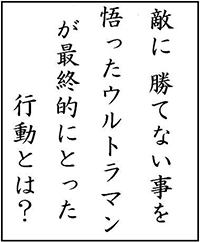 敵に 勝てない事を
悟ったウルトラマン
が最終的にとった
行動とは?